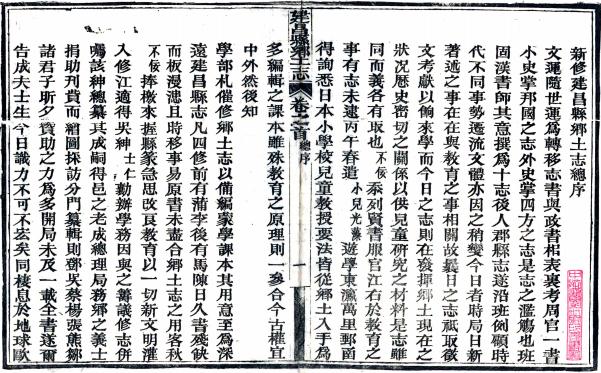 新修建昌縣鄉土志總序
文運隨世運爲轉移志書與政書相表裏考周官一書
小史掌邦國之志外史掌四方之志是志之濫觴也班
固漢書師其意撰爲十志後人郡縣志遂沿班例顧時
代不同事勢遷流文體亦因之稍變今日者時局日新
著述之事在在與教育之事相關故曩日之志祇取徵
文考獻以餉來學而今日之志則在發揮鄉土現在之
狀况歷史密切之關係以供兒童研究之材料是志雖
同而義各有取也不佞忝列賢書服官江右於教育之
事有志未逮丙午春遣小兒光藻遊學東瀛萬里郵函
得詢悉日本小學校兒童教授要法皆從鄉土入手爲
建昌縣鄉土志 卷之首 總序 一
多編輯之課本雖殊教育之原理則一參合今古權宜
中外然後知
學部札催修鄉土志以備編蒙學課本其用意至爲深
遠建昌縣志凡四修前有蒲李後有馬陳日久書殘缺
而板漫漶且時移事易原書未盡合鄉土志之用客秋
不佞捧檄來握縣篆急思改良教育以一切新文明灌
入修江適得吳紳士仁勷辦學務因與之籌議修志併
囑該紳總纂其成嗣得邑之老成總理局務鄉之義士
捐助刊貲而繪圖採訪分門纂輯則鄧吳蔡楊張熊鄒
諸君子昕夕贊助之力爲多開局未及一載全書遂爾
告成夫士生今日識力不可不宏矣同棲息於地球歐